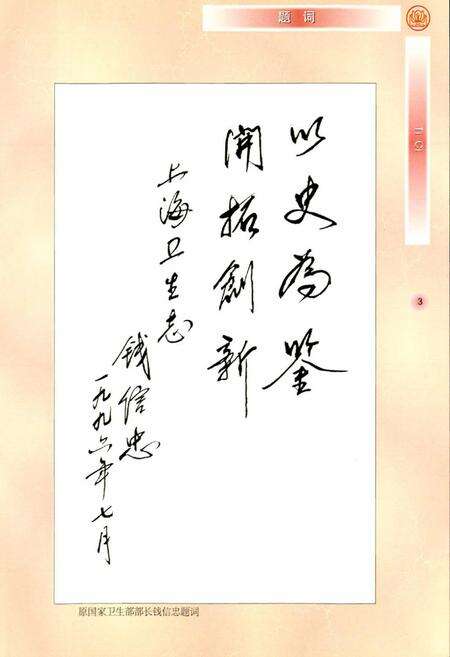 题词
以史为鉴
開拓創新
上海卫生志
钱信忠
一九九六年七月
3
原国家卫生部部长钱信忠题词